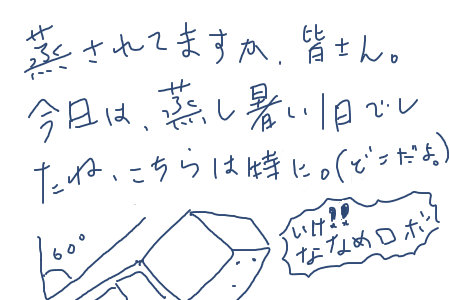 蒸されてますか、皆さん。
今日は、蒸し暑い1日でし
たね、こちらは特に。(どこだよ。)
60°
いけ!!
ななめロボ